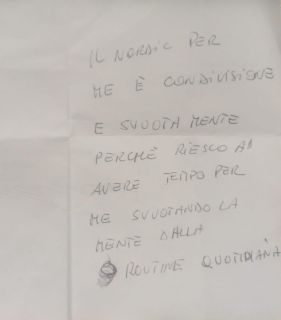 IL NORDIC PER
ME È CONDIVISIONE
E SVUOTA MENTE
PERCHÈ RIESCO AD
AVERE TEMPO PER
ME SVUOTANDO LA
MENTE DALLA
ROUTINE QUOTIDIANA